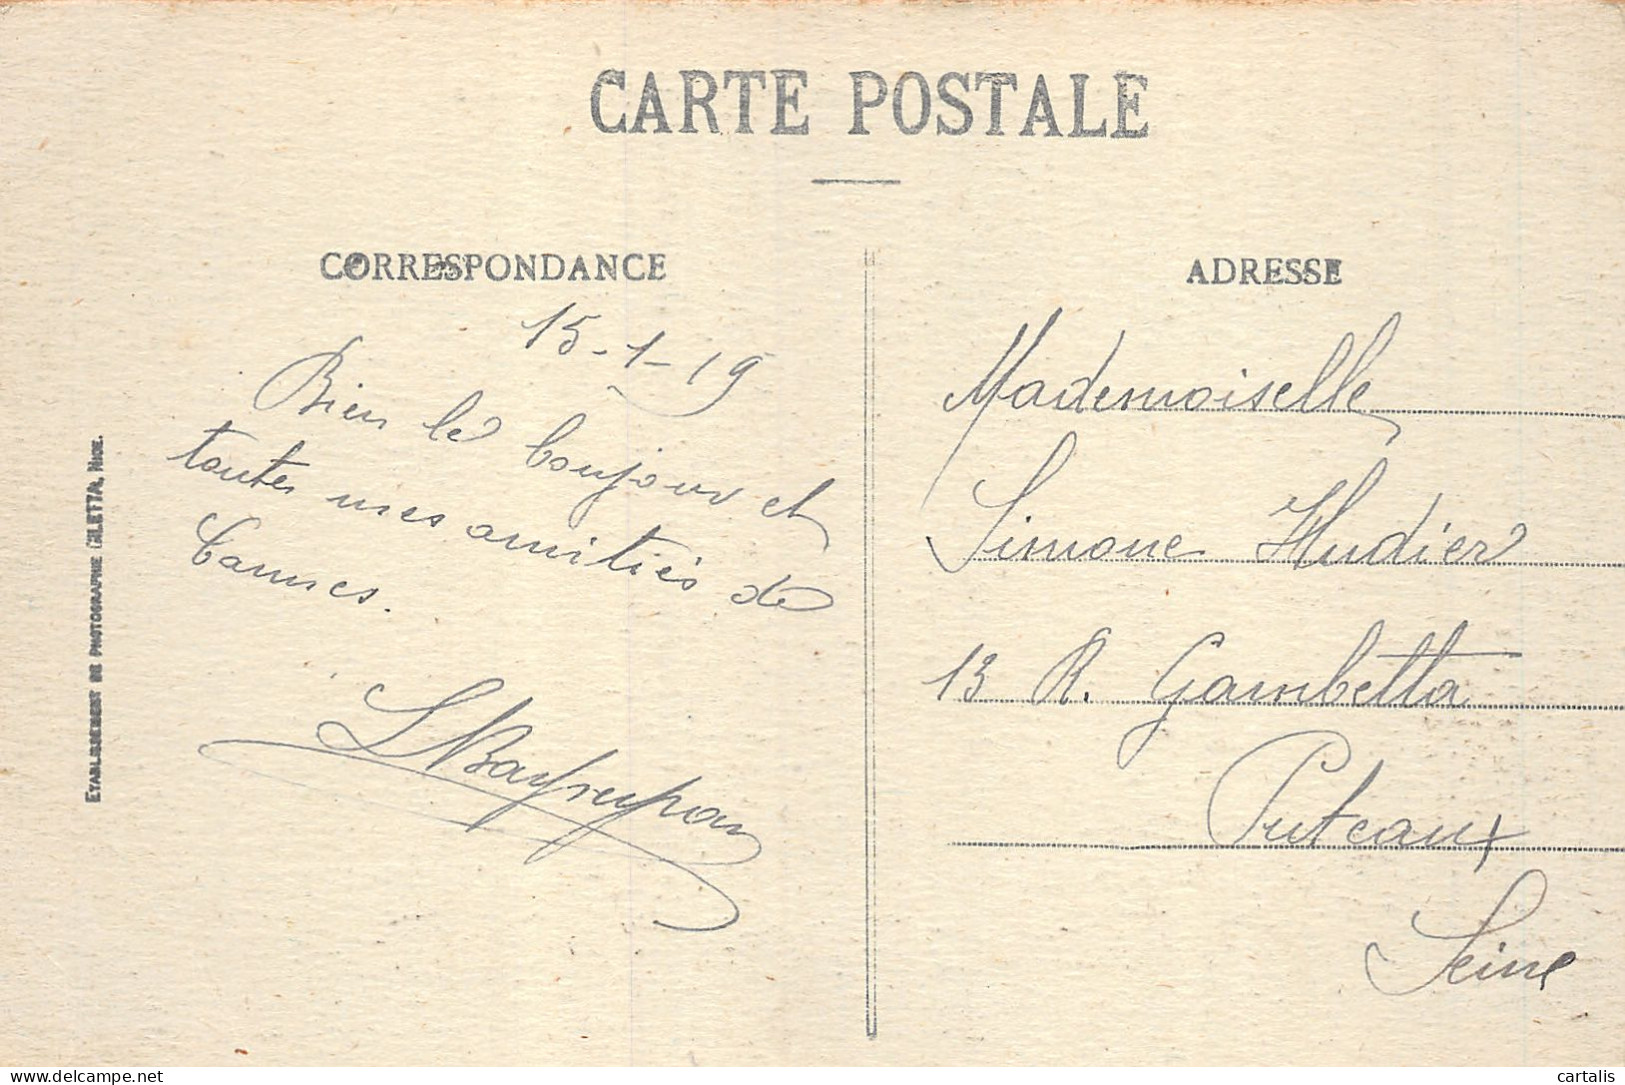 CARTE POSTALE
CORRESPONDANCE
15-1-19
Bien le bonjour et
toutes mes amitiés de
Cannes.
ADRESSE
Mademoiselle
Simone Hudier
13 R. Gambetta
Puteaux
Seine
ETABLISSEMENT DE PHOTOGRAPHIE GILETTA, NICE.
delcampe.net
cartalis